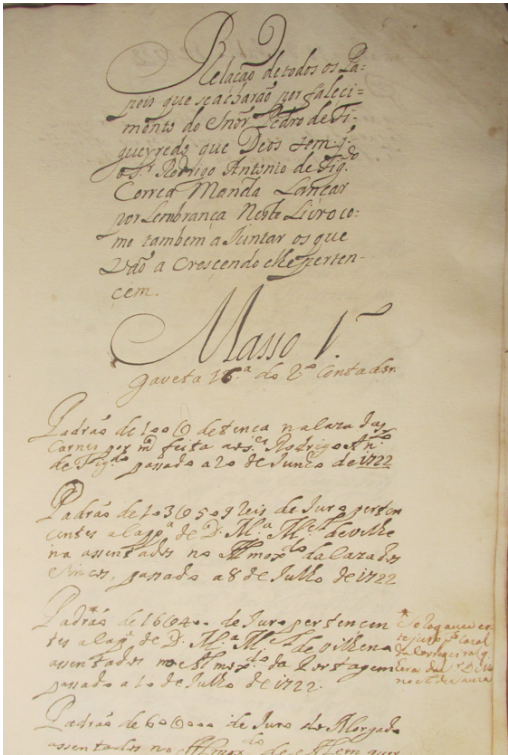 Relação de todos os Pa:
peis que se acharão por faleci=
mento do Snõr Pedro de Fi
gueyredo que Deos tem, q̃
o Sr. Rodrigo Antonio de Figdo
Correa Manda Lançar
por Lembrança Neste Livro co:
mo tambem a Juntar os que
Vão a Crescendo e lhe perten-
cem.
Masso 1.º
Gaveta 16.ª do 2º Contador.
Padrão de 100 de tença na Caza das
Carnes por m feita ao Sr. Rodrigo Anto
de Figdo passado a 20 de Junho de 1722
Padrão de 103 509 Reis de Juro perten
centes a Capª de D. Mª Mel de Vilhe
na assentados no Almoxdo da Caza dos
Cinco, passado a 8 de Julho de 1722
Padrão de 160 400 de Juro pertencen
tes a Capª de D. Mª Mel de Vilhena
assentados no Almoxdo da Portagem
passado a 10 de Julho de 1722.
este juro
Padrão de 60 000 de Juro do Morgado
assentados no Almoxdo de